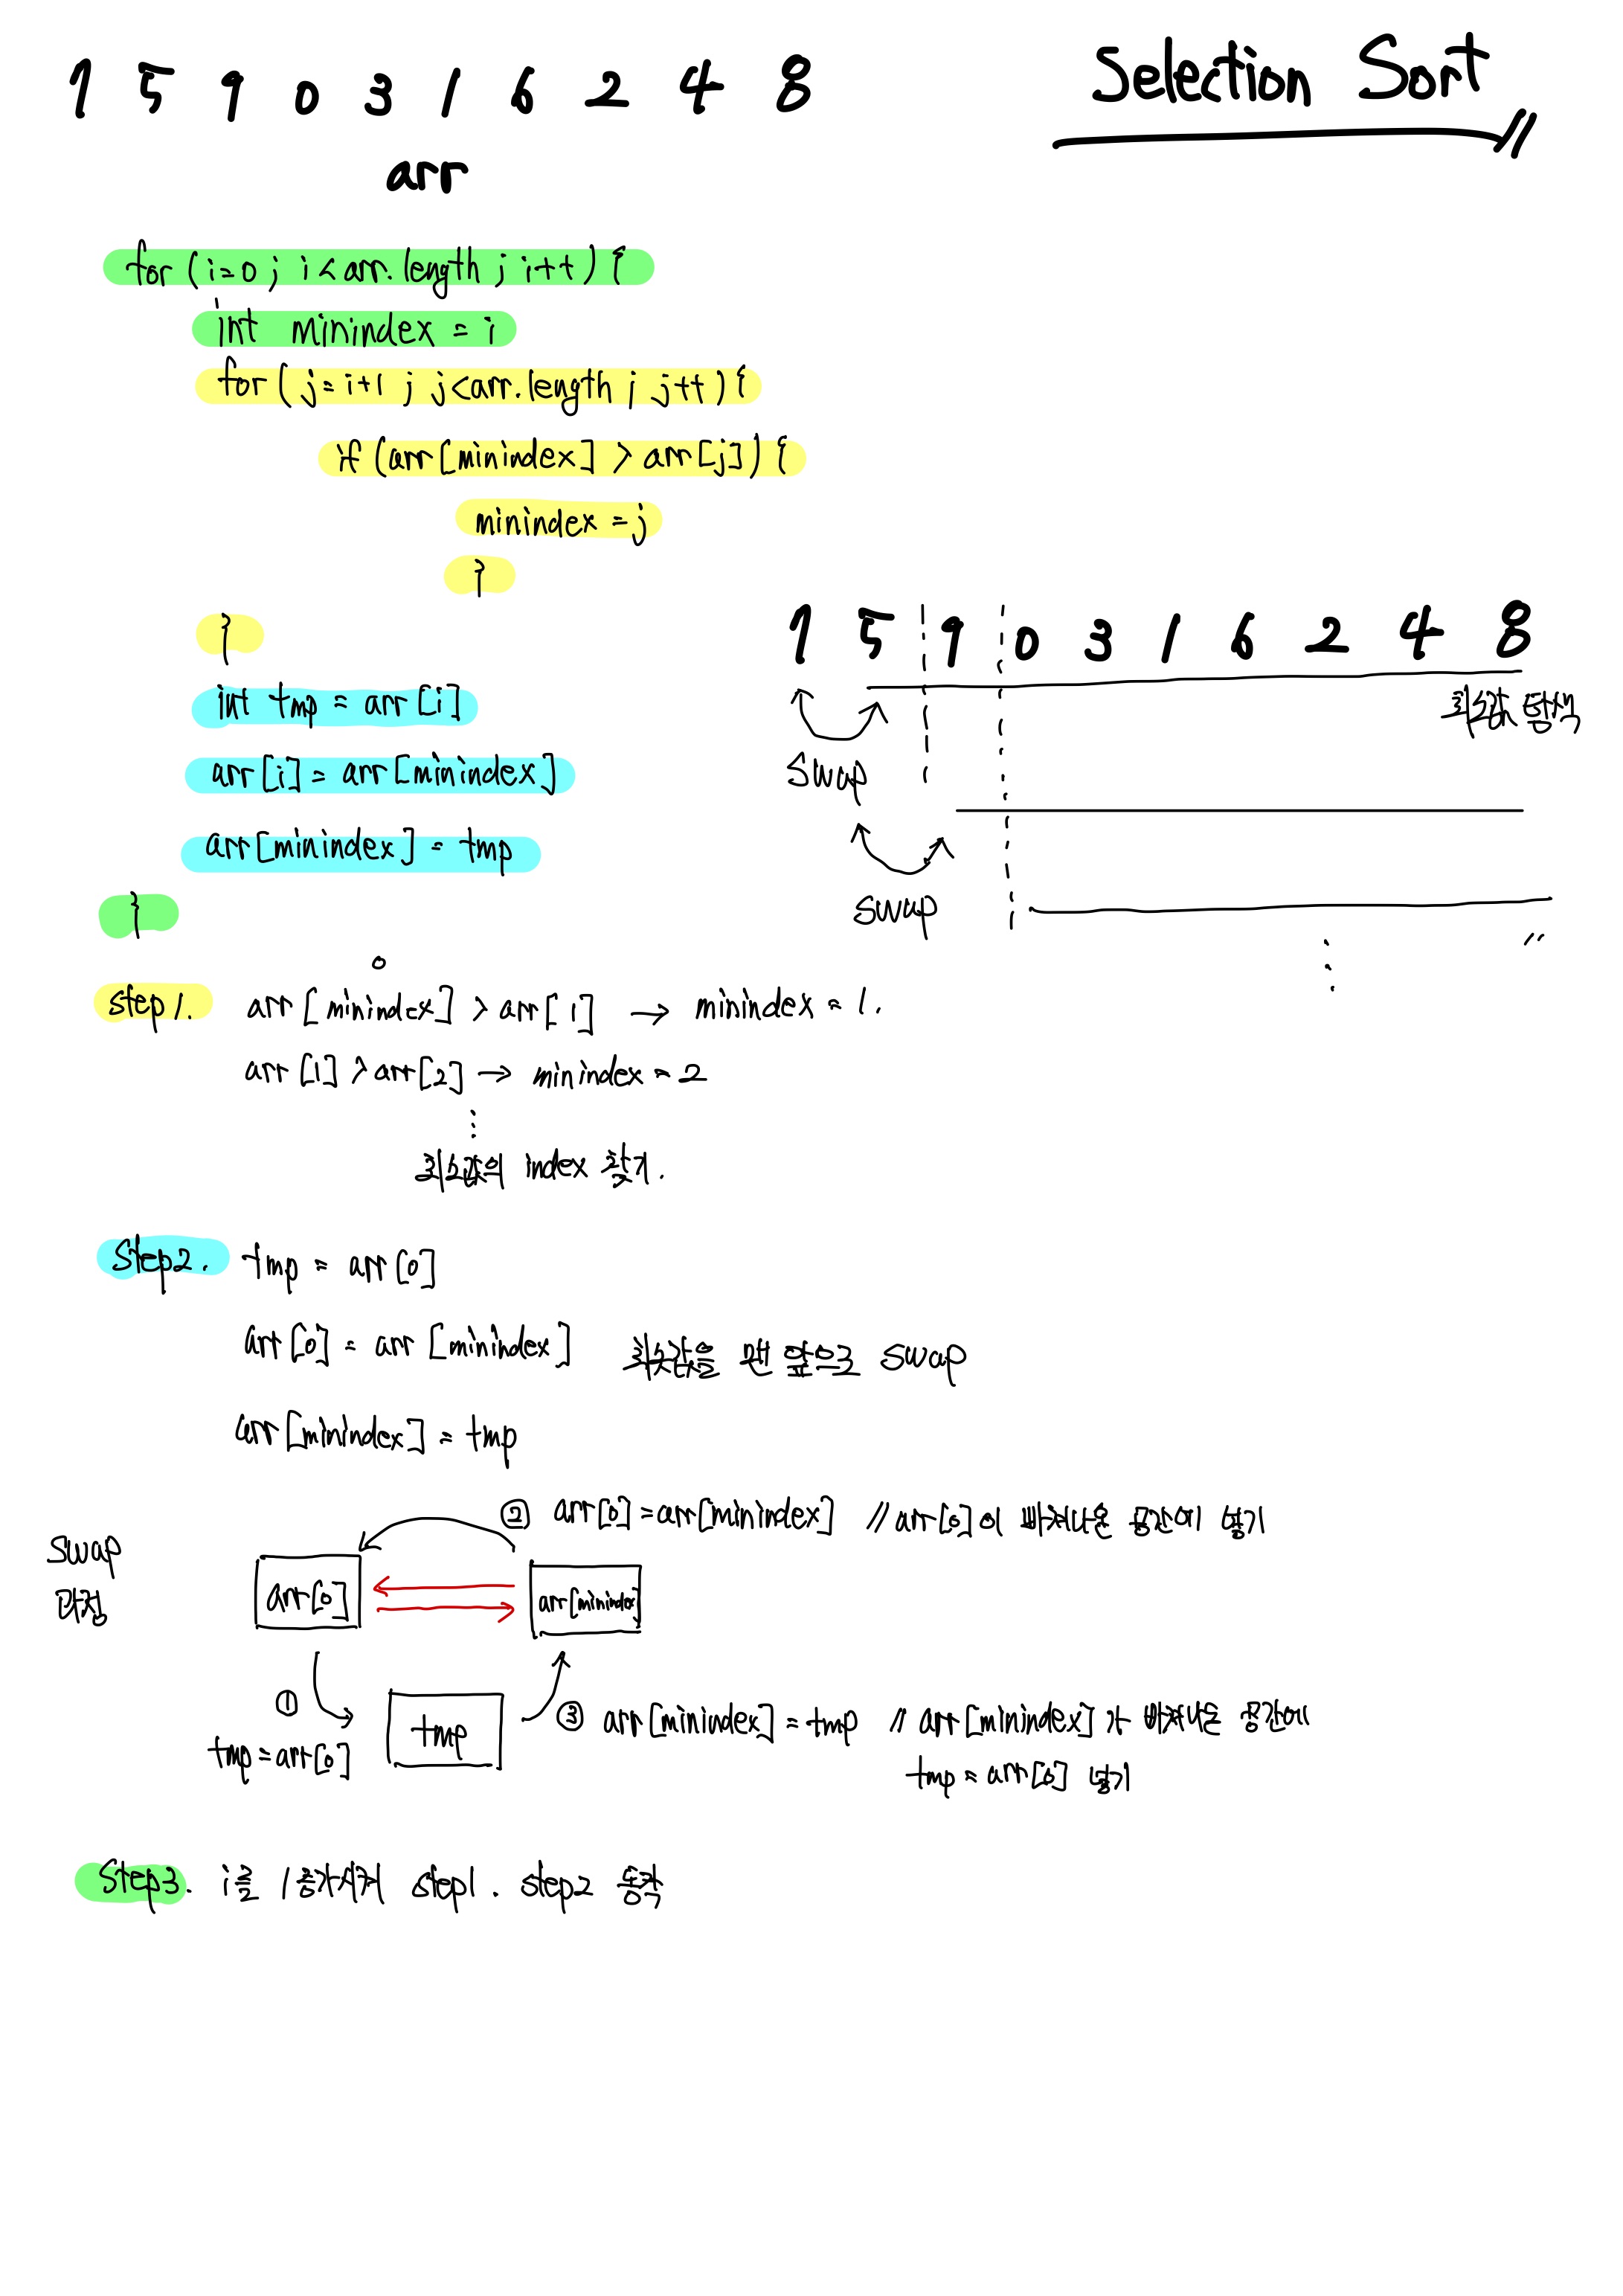 7 5 9 0 3 1 6 2 4 8
Selection Sort
arr
for (i=0 ; i<arr.length ; i++) {
int minindex = i
for ( j=i+1 ; j<arr.length ; j++) {
if (arr[minindex] > arr[j]) {
minindex = j
}
}
int tmp = arr[i]
arr[i] = arr[minindex]
arr[minindex] = tmp
}
7 5 9 0 3 1 6 2 4 8
최소값 탐색
swap
swap
〃
0
step1. arr [minindex] > arr[1] → minindex = 1.
arr [1] > arr[2] → minindex = 2
최소값의 index 찾기.
Step2. tmp = arr[0]
arr[0] = arr [minindex] 최솟값을 맨 앞으로 swap
arr[minindex] = tmp
② arr[0] = arr[minindex] // arr[0]이 빠져나온 공간에 넣기
Swap
과정
arr[0]
arr[minindex]
①
tmp = arr[0]
tmp
③ arr[minindex] = tmp // arr[minindex]가 빠져나온 공간에
tmp = arr[0] 넣기
Step3. i를 1증가시켜 step1. step2 동작